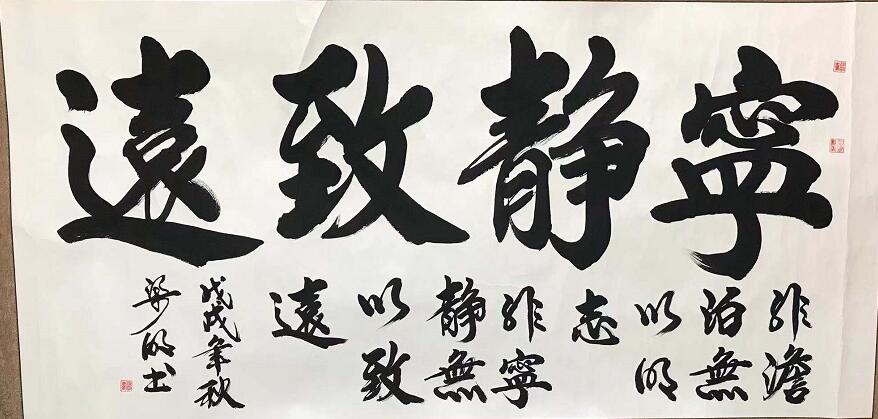 寧静致遠
非澹
泊無
以明
志
非寧
静無
以致
遠
戊戌年秋
梁明书